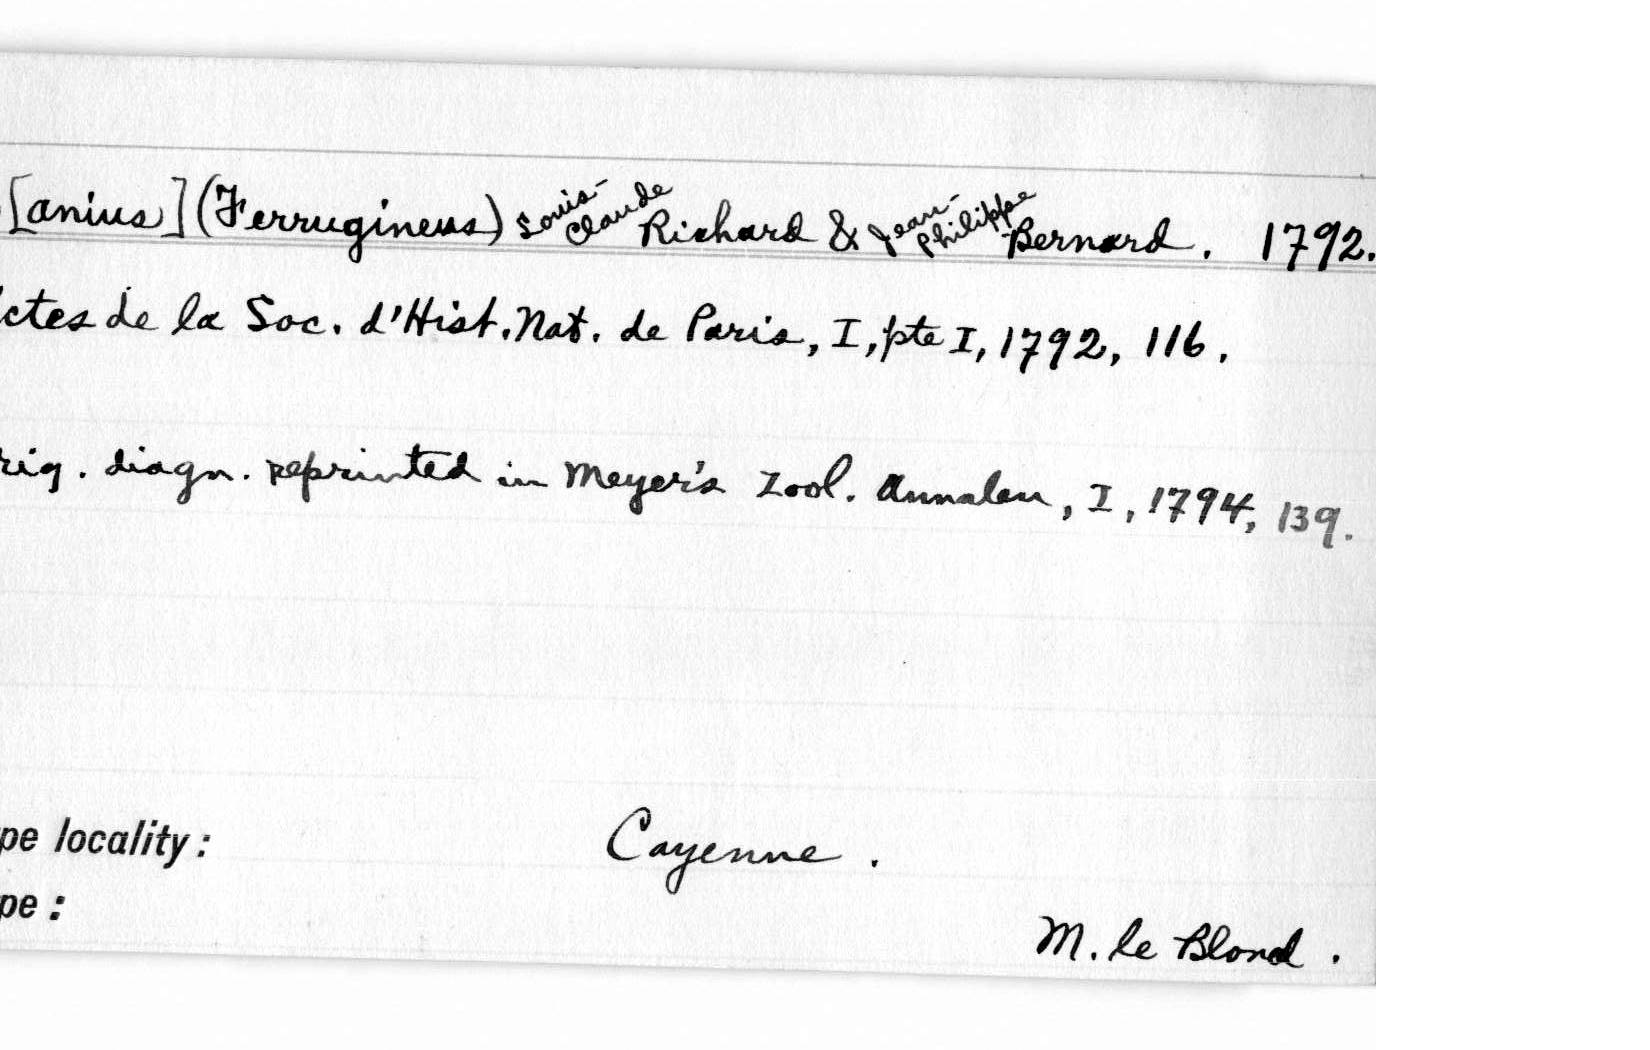 [anius] (Ferrugineus) Louis-Claude Richard & Jean-Philippe Bernard. 1792.
ctes de la Soc. d'Hist. Nat. de Paris, I, pte I, 1792, 116.
rig. diagn. reprinted in Meyer's Zool. Annalen, I, 1794, 139.
pe locality: Cayenne.
pe:
M. le Blond.